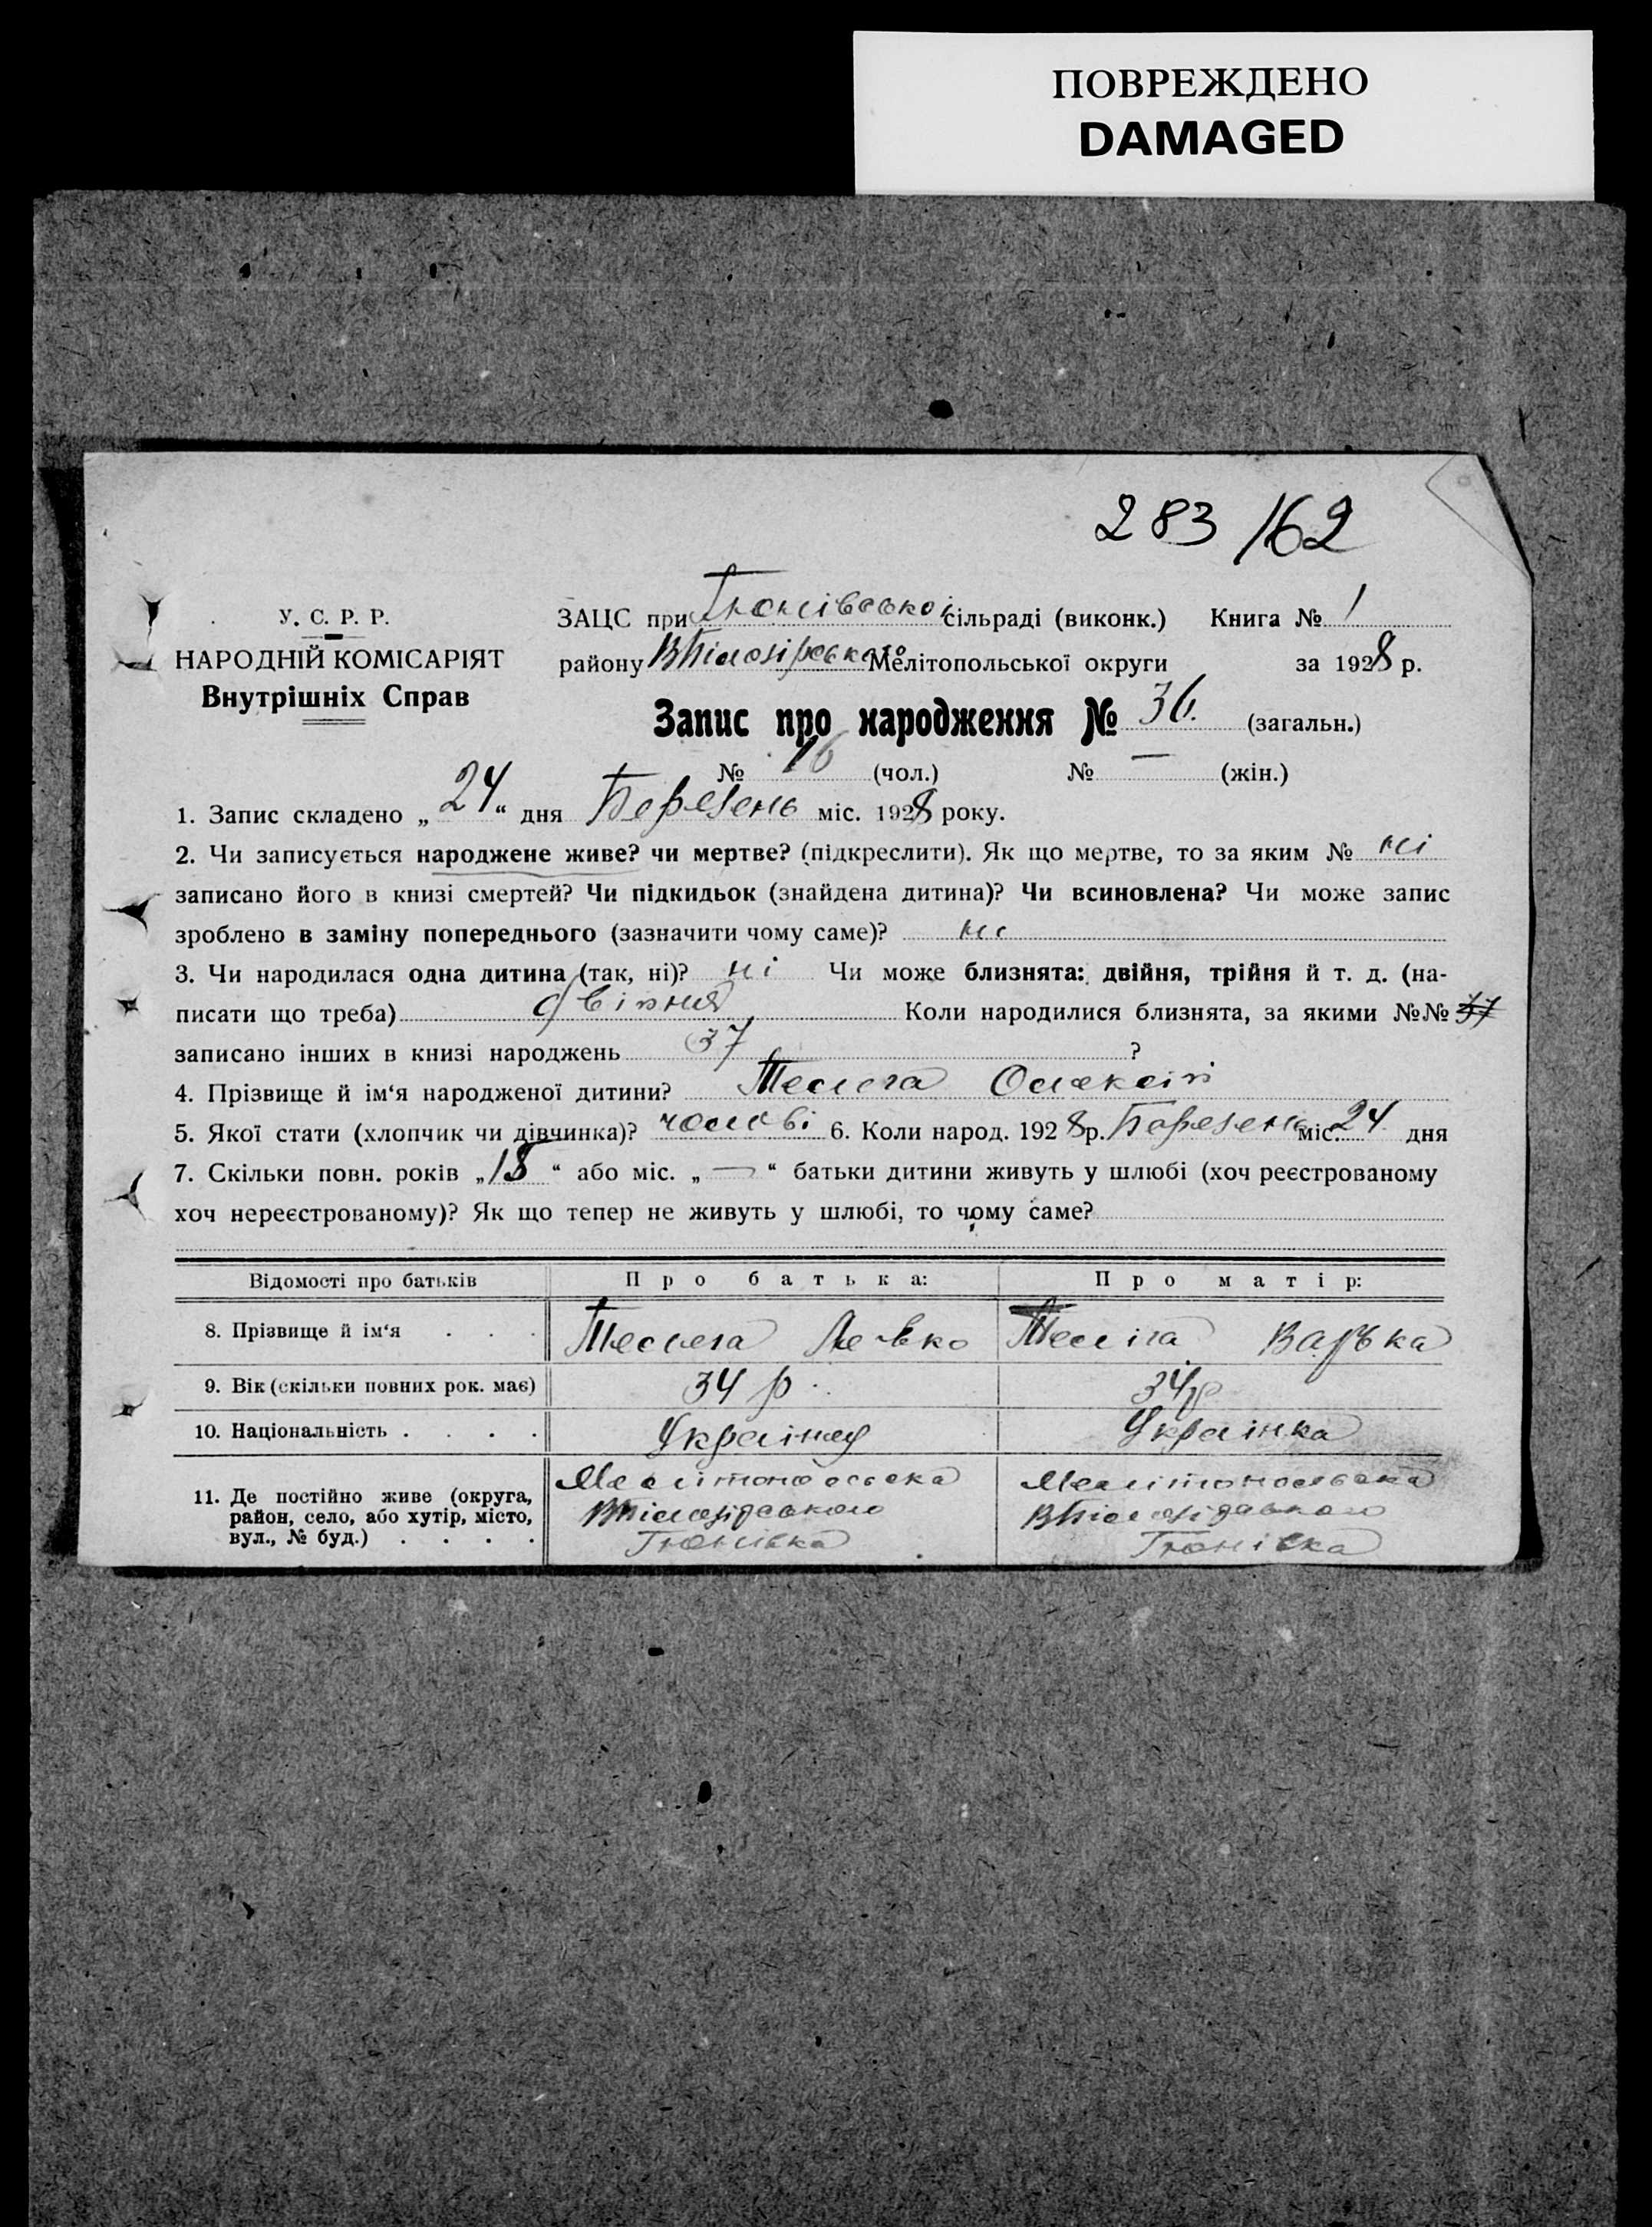 ПОВРЕЖДЕНО
DAMAGED
283/62
У. С. Р. Р.
НАРОДНІЙ КОМІСАРІЯТ
Внутрішніх Справ
ЗАЦС при Тюнівської сільраді (виконк.) Книга № 1
району ВБілозірського Мелітопольської округи за 1928 р.
Запис про народження № 36. (загальн.)
№ 16 (чол.) № — (жін.)
1. Запис складено „24“ дня Березень міс. 1928 року.
2. Чи записується народжене живе? чи мертве? (підкреслити). Як що мертве, то за яким № ні
записано його в книзі смертей? Чи підкидьок (знайдена дитина)? Чи всиновлена? Чи може запис
зроблено в заміну попереднього (зазначити чому саме)? ні
3. Чи народилася одна дитина (так, ні)? ні Чи може близнята: двійня, трійня й т. д. (на-
писати що треба) двійня Коли народилися близнята, за якими №№ 37
записано інших в книзі народжень 37 ?
4. Прізвище й ім‘я народженої дитини? Теслега Олексій
5. Якої стати (хлопчик чи дівчинка)? чолові 6. Коли народ. 1928р. Березень міс. 24 дня
7. Скільки повн. років „15“ або міс. „—“ батьки дитини живуть у шлюбі (хоч реєстрованому
хоч нереєстрованому)? Як що тепер не живуть у шлюбі, то чому саме?
Відомості про батьків Про батька: Про матір:
8. Прізвище й ім‘я . . . Теслега Левко Тесліга Варька
9. Вік (скільки повних рок. має) 34 р. 34р
10. Національність . . . . Українец Українка
11. Де постійно живе (округа, Мелітопольська Мелітопольська
район, село, або хутір, місто, ВБілозірського ВБілозірського
вул., № буд.) . . . . Тюнівка Тюнівка